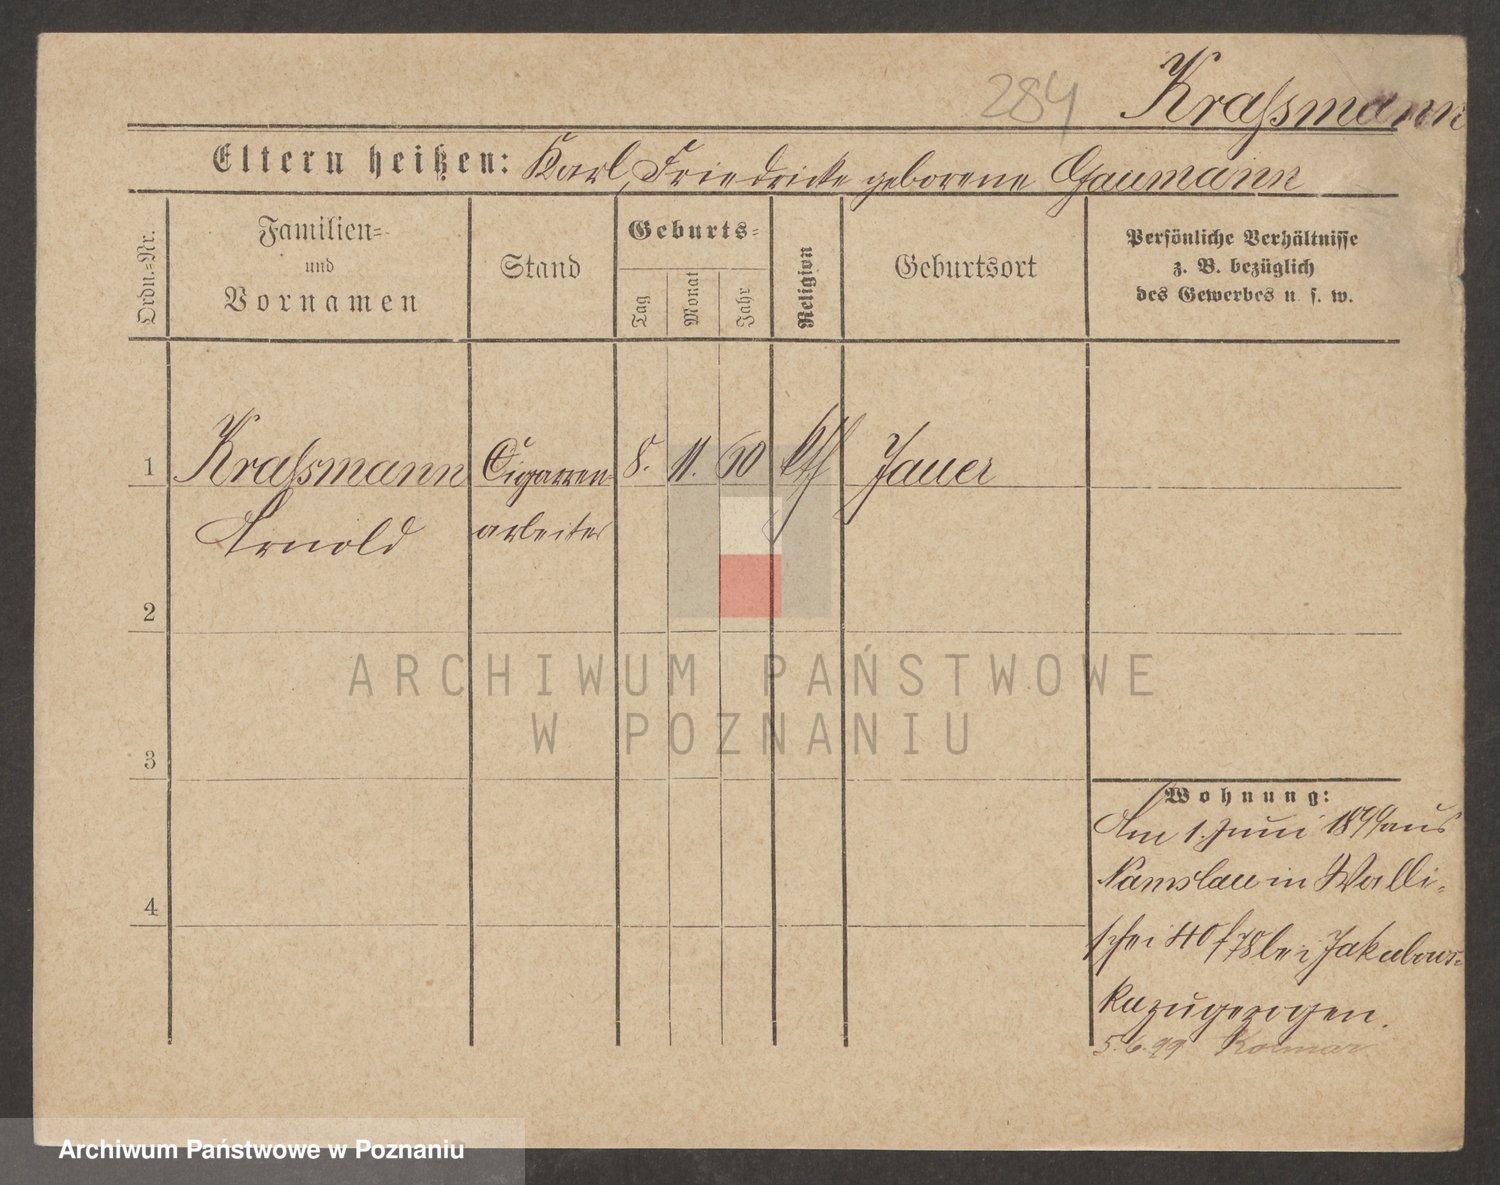 284 Kraſsmann
Eltern heißen: Karl, Friedricke geborene Gaumann
Ordn.=Nr.
Familien=
und
Vornamen
Stand
Geburts=
Tag
Monat
Jahr
Religion
Geburtsort
Persönliche Verhältnisse
z. B. bezüglich
des Gewerbes u. s. w.
1 Kraſsmann Cigarren- 8. 11. 60 Jauer
Arnold arbeiter
2
3
4
Wohnung:
Am 1. Juni 1899 aus
Namslau in Walli-
schei 40/78 bei Jakubows-
ka zugezogen.
5.6.99 Kolmar
ARCHIWUM PAŃSTWOWE
W POZNANIU
Archiwum Państwowe w Poznaniu